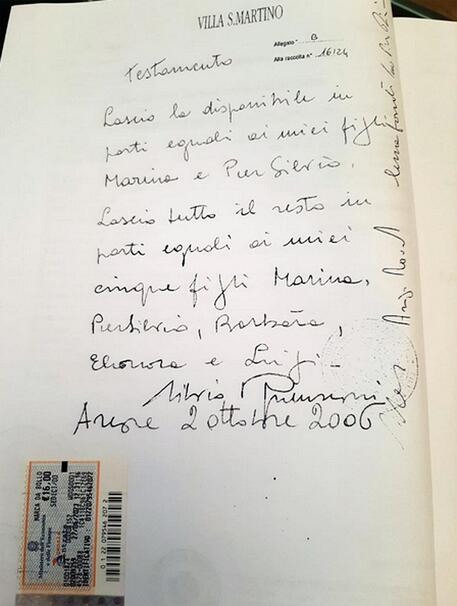 VILLA S.MARTINO
Allegato " B
Alla raccolta n° 16124
Testamento
Lascio la disponibile in
parti eguali ai miei figli
Marina e Pier Silvio.
Lascio tutto il resto in
parti eguali ai miei
cinque figli Marina,
PierSilvio, Barbara,
Eleonora e Luigi.
Silvio Berlusconi
Arcore 2 ottobre 2006
MARCA DA BOLLO
€16,00
SEDICI/00
0 1 22 079546 207 2